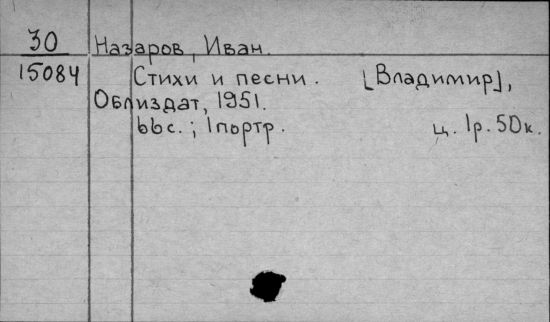 30 Назаров, Иван.
15084 Стихи и песни. [Владимир],
Облиздат, 1951.
66с.; 1портр. ц. 1р. 50к.